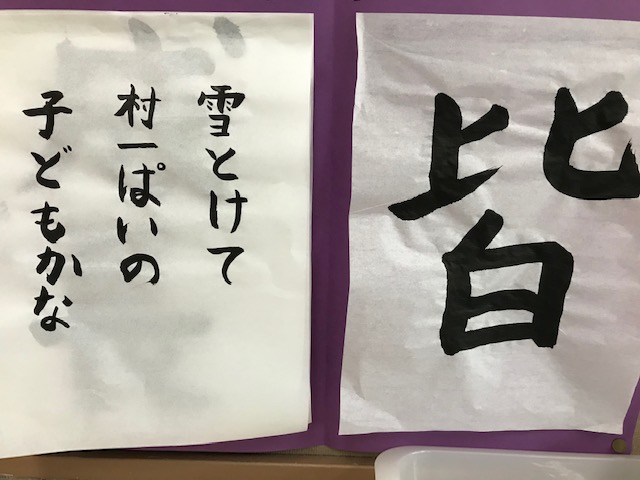 皆
雪とけて
村一ぱいの
子どもかな